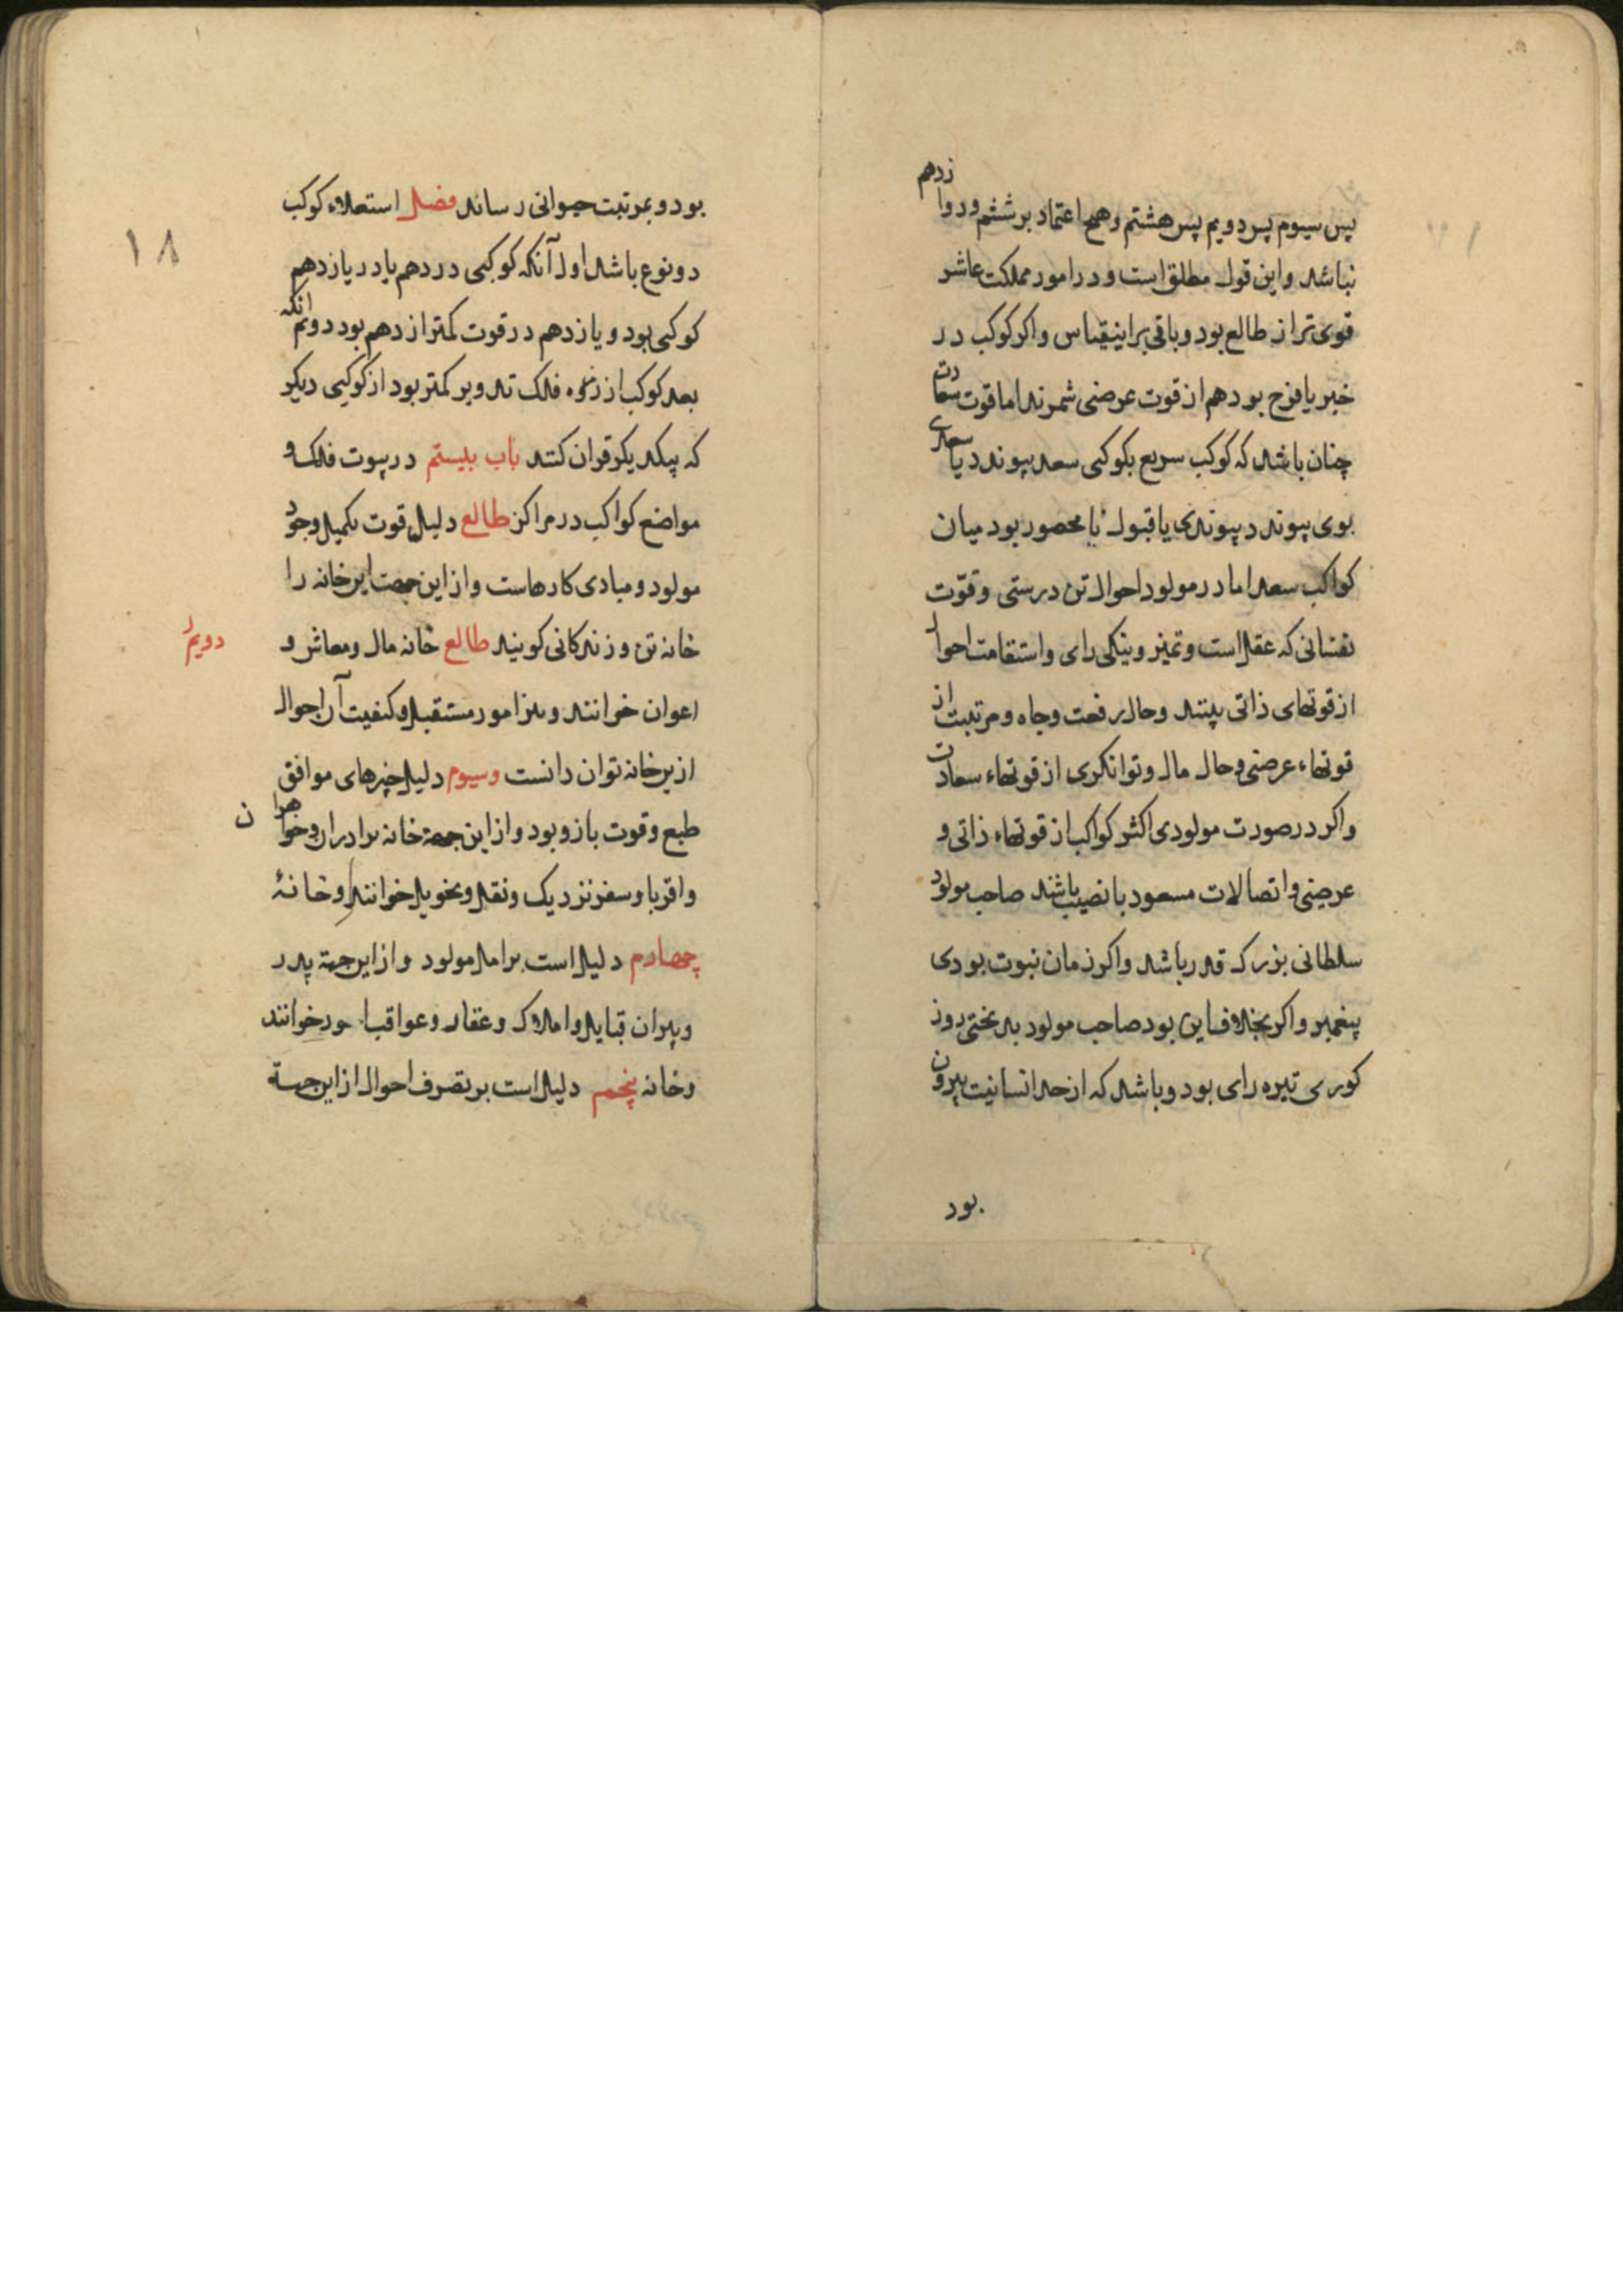 پس سیوم پس دویم پس هشتم و هیچ اعتماد بر ششم و دوازدهم
نباشد و این قول مطلق است و در امور مملکت عاشر
قوی تر از طالع بود و باقی براینقیاس و اکر کوکب در
خیر یا فرح بود هم از قوت عرضی شمرند اما قوت سعادت
چنان باشد که کوکب سریع بکوکبی سعد پیوندد یا سعدی
بوی پیوندد پیوندی یا قبول یا محصور بود میان
کواکب سعد اما در مولود احوال تن درستی و قوّت
نفسانی که عقل است و تمیز و نیکی رای و استقامت احوال
از قوتهای ذاتی بینند و حال رفعت وجاه و مرتبت از
قوتهاء عرضی وحال مال و توانکری از قوتهاء سعادت
واکر در صورت مولودی اکثر کواکب از قوتهاء ذاتی و
عرضی و اتصالات مسعود با نصیب باشند صاحب مولود
سلطانی بزرک قدر باشد واکر زمان نبوت بودی
پیغمبر واکر بخلاف این بود صاحب مولود بد بختی روز
کوری تیره رای بود و باشد که از حد انسانیت بیرون
بود
۱۸
بود و بمرتبت حیوانی رساند فصل استعلاء کوکب
دو نوع باشد اول آنکه کوکبی در دهم یا در یازدهم
کوکبی بود و یازدهم در قوت کمتر از دهم بود دویم انکه
بعد کوکب از ذروه فلک تدویر کمتر بود از کوکبی دیکر
که بیکدیکر قران کنند باب بیستم در بیوت فلک و
مواضع کواکب در مراکز طالع دلیل قوت تکمیل وجود
مولود و مبادی کارهاست و از این جهت این خانه را
خانه تن و زندکانی کویند طالع خانه مال ومعاش و
دویم
اعوان خوانند و نیز امور مستقبل و کیفیت آن احوال
ازین خانه توان دانست وسیوم دلیل چیزهای موافق
طبع وقوت بازو بود و از این جهة خانه برادران وخواهران
واقربا و سفر نزدیک ونقل وتحویل خوانند وخانهٔ
چهارم دلیل است بر امل مولود و از این جهة پدر
وپیران قبایل و املاک وعقار وعواقب خوانند
وخانه پنجم دلیل است بر تصرف احوال از این جهة